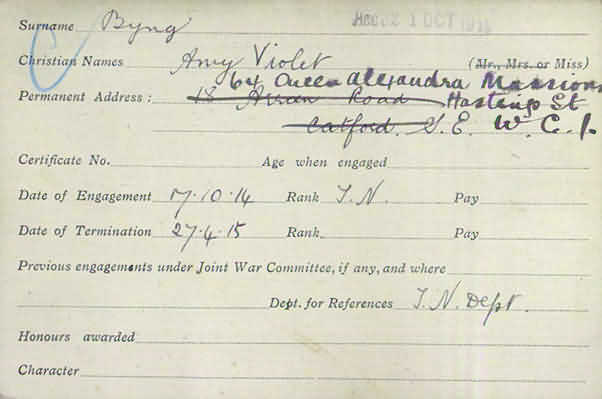 Surname Byng
Christian Names Amy Violet (Mr., Mrs. or Miss)
64 Queen Alexandra Mansions
Permanent Address: 18 Arran Road Hastings St
Catford. S.E. W.C.1.
Certificate No. Age when engaged
Date of Engagement 17.10.14 Rank T.N. Pay
Date of Termination 27.4.15 Rank Pay
Previous engagements under Joint War Committee, if any, and where
Dept. for References T.N. Dept.
Honours awarded
Character